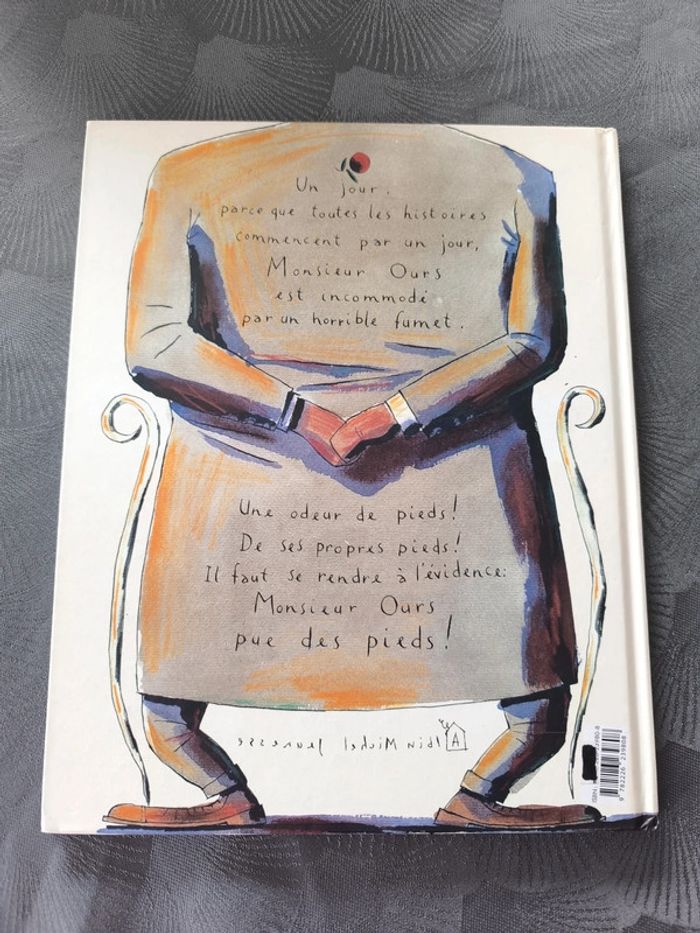 Un jour,
parce que toutes les histoires
commencent par un jour,
Monsieur Ours
est incommodé
par un horrible fumet.
Une odeur de pieds!
De ses propres pieds!
Il faut se rendre à l'évidence:
Monsieur Ours
pue des pieds!
Albin Michel Jeunesse
ISBN
9 782226 239808